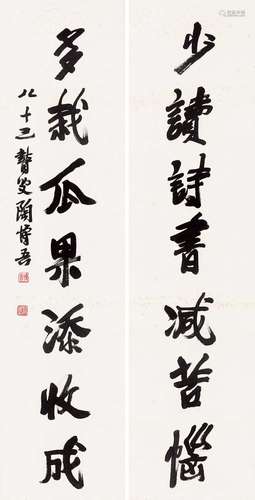 少讀詩書减苦惱
多栽瓜果添收成
八十三聾叟陶博吾